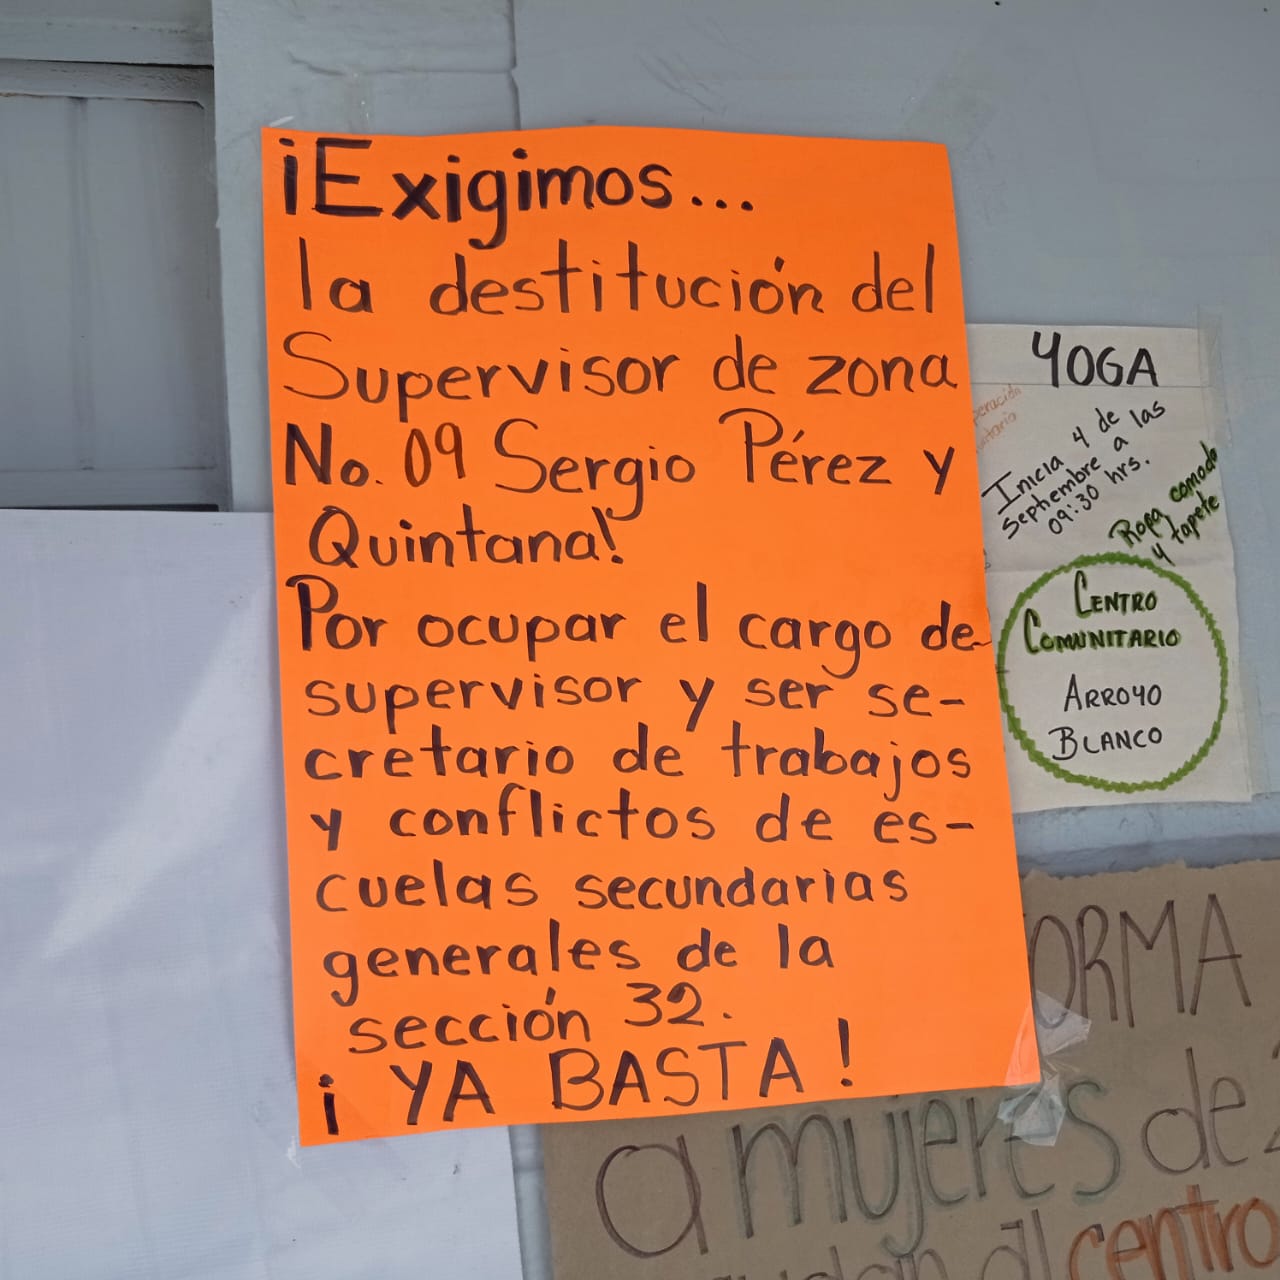 ¡Exigimos...
la destitución del
Supervisor de zona
No. 09 Sergio Pérez y
Quintana!
Por ocupar el cargo de
supervisor y ser se-
cretario de trabajos
y conflictos de es-
cuelas secundarias
generales de la
sección 32.
¡YA BASTA!
YOGA
Inicia 4 de
Septembre a las
09:30 hrs.
Ropa comoda
y tapete
CENTRO
COMUNITARIO
ARROYO
BLANCO
ORMA
a mujeres de
al centro